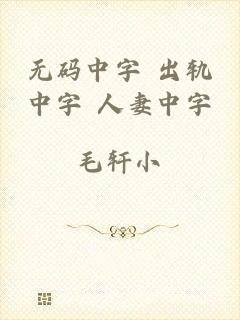 无码中字 出轨
中字 人妻中字
毛轩小